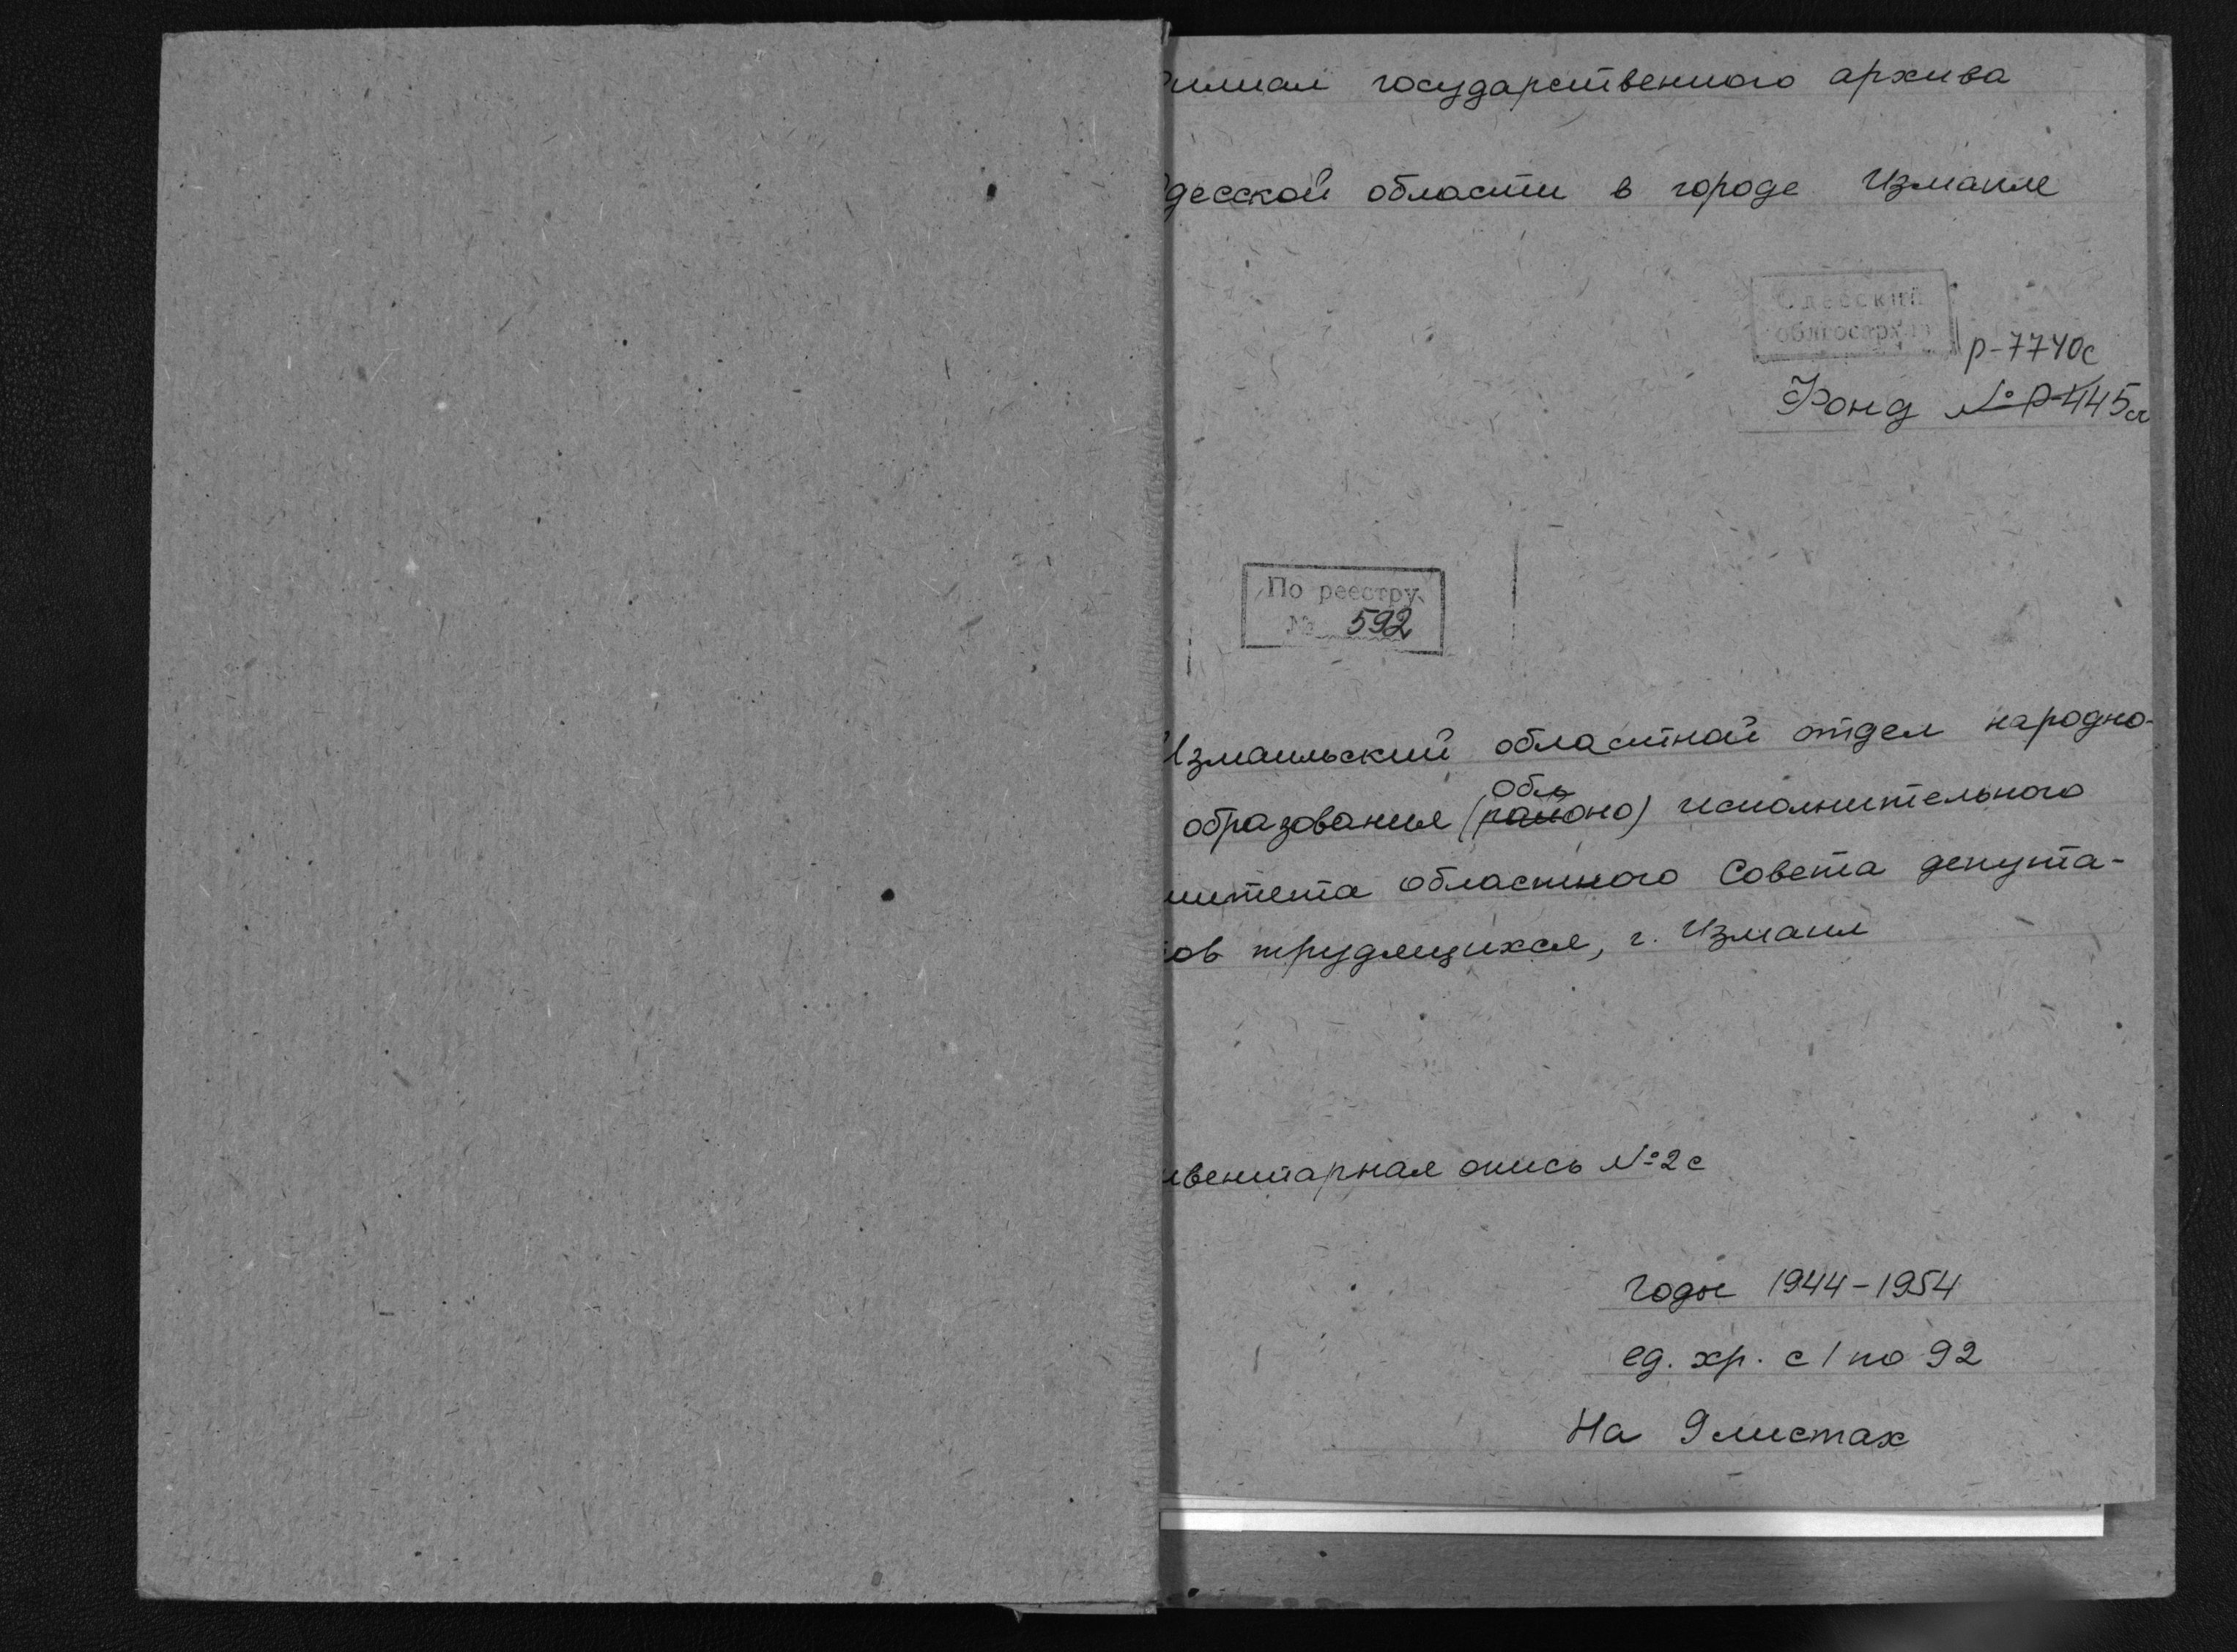 филиал государственного архива
Одесской области в городе Измаиле
Одесский
облгосархив
р-7740с
Фонд №Р-445с
По реестру
№ 592
Измаильский областной отдел народно-
образования (районо) исполнительного
обл
митета областного Совета депута-
тов трудящихся, г. Измаил
нвентарная опись №2с
годы 1944-1954
ед. хр. с 1 по 92
На 9 листах